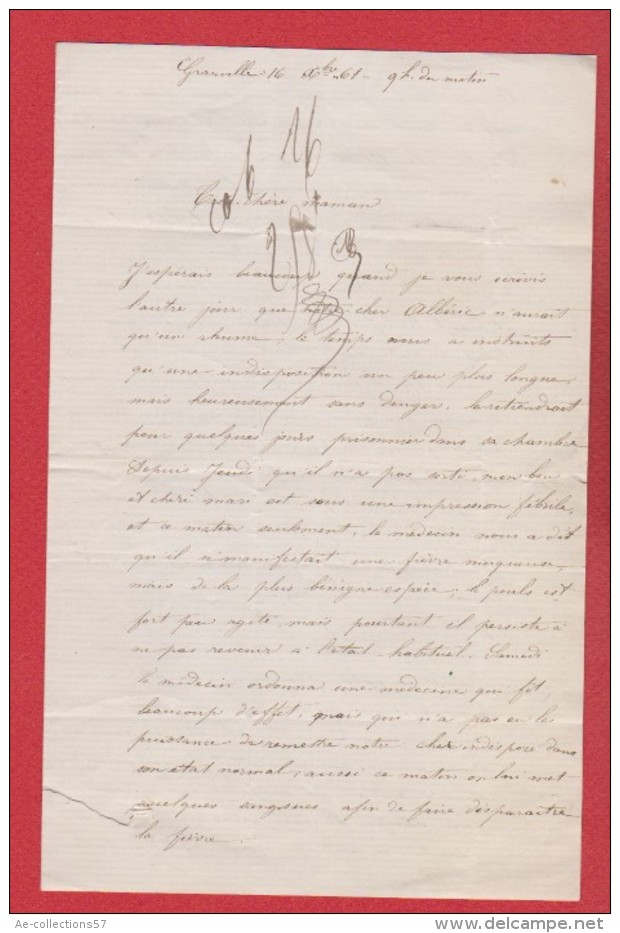 Granville 16 Xbre 61 - 9 h. du matin
26 16
Très chère maman
258
J'espérais beaucoup quand je vous écrivis
l'autre jour que notre cher Albéric n'aurait
qu'un rhume, le temps nous a instruits
qu'une indisposition un peu plus longue,
mais heureusement sans danger, le retiendrait
pour quelques jours prisonnier dans sa chambre
Depuis Jeudi qu'il n'a pas sorti, mon bon
et chéri mari est sous une impression fébrile,
et ce matin seulement, le médecin nous a dit
qu'il se manifestait une fièvre muqueuse,
mais de la plus bénigne espèce ; le pouls est
fort peu agité, mais pourtant il persiste à
ne pas revenir à l'état habituel. Samedi
le médecin ordonna une médecine qui fit
beaucoup d'effet, mais qui n'a pas eu la
puissance de remettre notre cher indisposé dans
son état normal ; aussi ce matin on lui met
quelques sangsues afin de faire disparaître
la fièvre.
Ae-collections57
www.delcampe.net